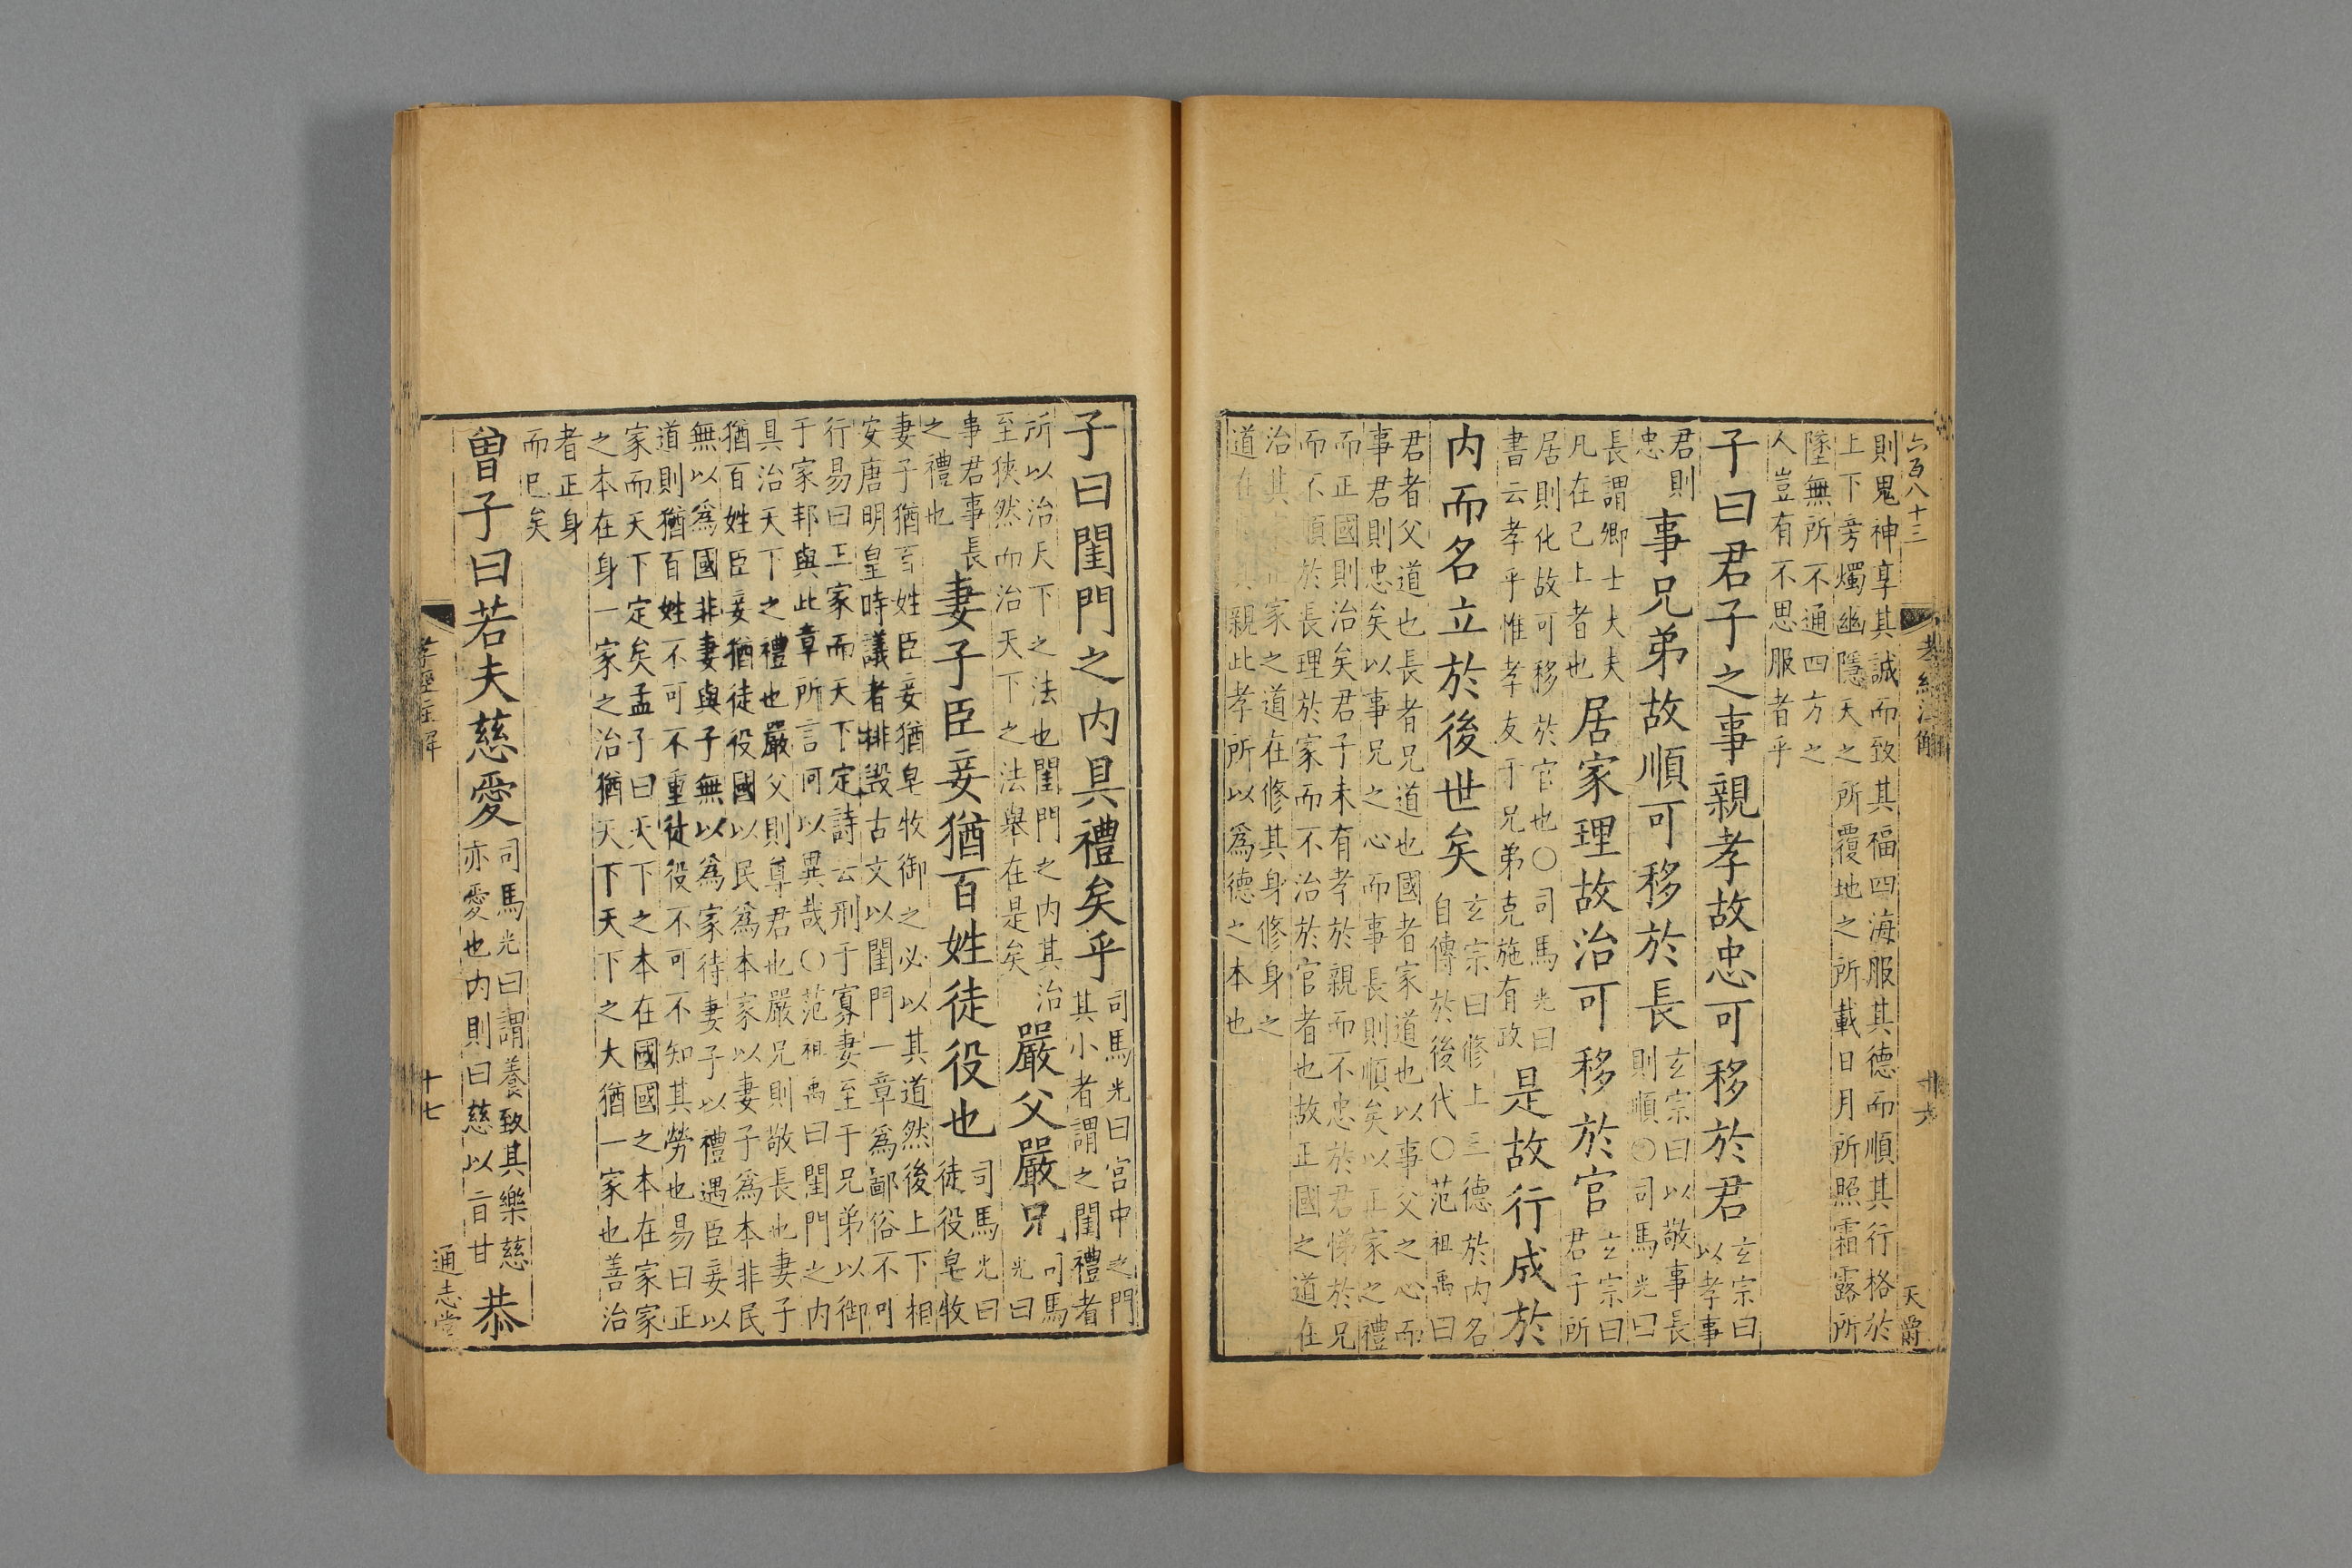 六百八十三
孝經注解
十六
天爵
則鬼神享其誠而致其福四海服其德而順其行格於
上下旁燭幽隱天之所覆地之所載日月所照霜露所
墜無所不通四方之
人豈有不思服者乎
子曰君子之事親孝故忠可移於君
玄宗曰
以孝事
君則
忠
事兄弟故順可移於長
玄宗曰以敬事長
則順○司馬光曰
長謂卿士大夫
凡在己上者也
居家理故治可移於官
玄宗曰
君子所
居則化故可移於官也○司馬光曰
書云孝乎惟孝友于兄弟克施有政
是故行成於
内而名立於後世矣
玄宗曰修上三德於内名
自傳於後代○范祖禹曰
君者父道也長者兄道也國者家道也以事父之心而
事君則忠矣以事兄之心而事長則順矣以正家之禮
而正國則治矣君子未有孝於親而不忠於君悌於兄
而不順於長理於家而不治於官者也故正國之道在
治其家正家之道在修其身修身之
道在親此孝所以爲德之本也
子曰閨門之内具禮矣乎
司馬光曰宮中之門
其小者謂之閨禮者
所以治天下之法也閨門之内其治
至狹然而治天下之法舉在是矣
嚴父嚴兄
司馬
光曰
事君事長
之禮也
妻子臣妾猶百姓徒役也
司馬光曰
徒役皂牧
妻子猶百姓臣妾猶皂牧御之必以其道然後上下相
安唐明皇時議者排毀古文以閨門一章爲鄙俗不可
行易曰正家而天下定詩云刑于寡妻至于兄弟以御
于家邦與此章所言何以異哉○范祖禹曰閨門之内
具治天下之禮也嚴父則尊君也嚴兄則敬長也妻子
猶百姓臣妾猶徒役國以民爲本家以妻子爲本非民
無以爲國非妻與子無以爲家待妻子以禮遇臣妾以
道則猶百姓不可不重徒役不可不知其勞也易曰正
家而天下定矣孟子曰天下之本在國國之本在家家
之本在身一家之治猶天下天下之大猶一家也善治
者正身
而已矣
曾子曰若夫慈愛
司馬光曰謂養致其樂慈
亦愛也内則曰慈以旨甘
恭
孝經注解
十七
通志堂